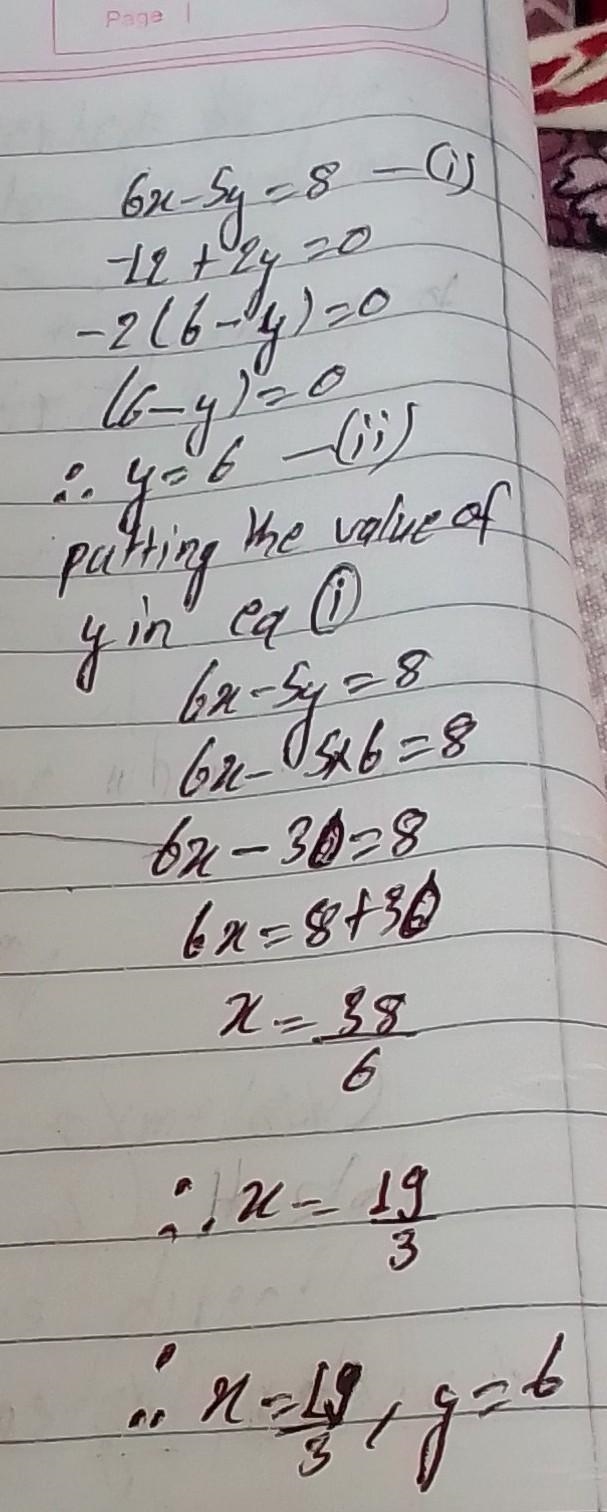 Page |
6x-5y=8 —(i)
-12+2y=0
-2(6-y)=0
(6-y)=0
∴ y=6 —(ii)
putting the value of
y in eq (i)
6x-5y=8
6x-5×6=8
6x-30=8
6x=8+30
x=38/6
∴ x=19/3
∴ x=19/3, y=6